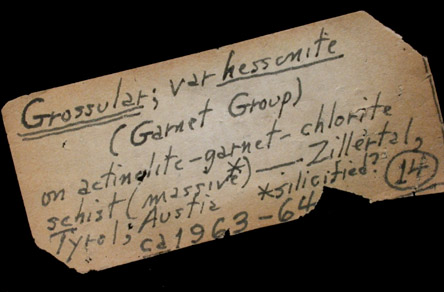 Grossular; var hessonite
(Garnet Group)
on actinolite-garnet-chlorite
schist (massive*) — Zillertal,
Tyrol; Austia *silicified? 14
ca 1963-64